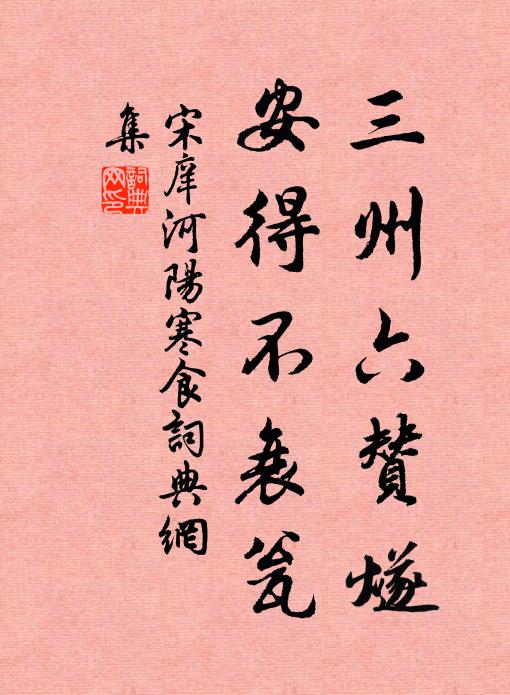 三州六贊燧
安得不衰瓮
宋庠河陽寒食詞典網
集
詞典网印